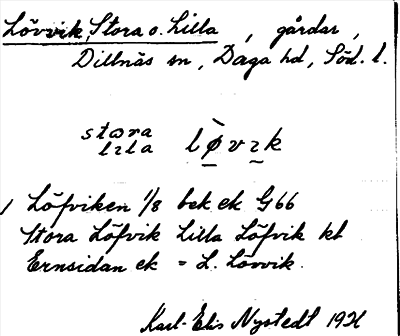 Lövvik, Stora o. Lilla, gårdar,
Dillnäs sn, Daga hd, Söd. l.
stɷra
lɩla lø̱vɩ̱k
/ Löfviken 1/8 bek ek G66
Stora Löfvik Lilla Löfvik kt
Ernsidan ek = L. Lövvik.
Karl-Elis Nystedt